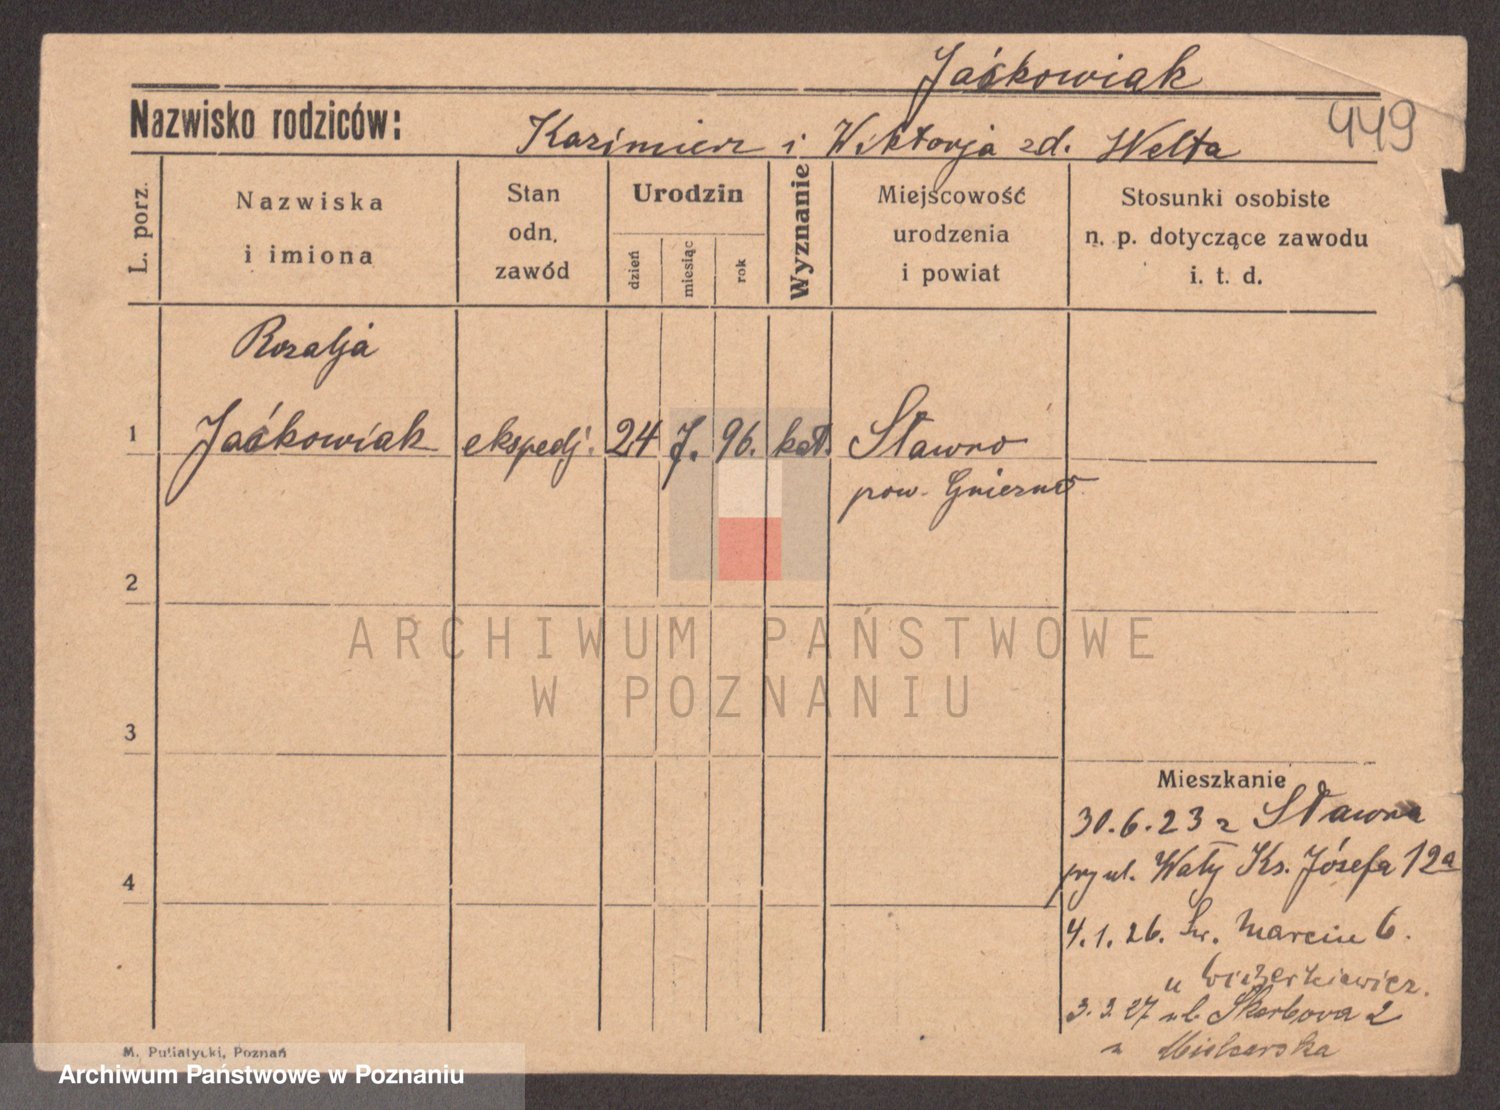 Jaśkowiak
449
Nazwisko rodziców:
Kazimierz i Wiktorja zd. Welta
L. porz.
Nazwiska
i imiona
Stan
odn.
zawód
Urodzin
dzień
miesiąc
rok
Wyznanie
Miejscowość
urodzenia
i powiat
Stosunki osobiste
n. p. dotyczące zawodu
i. t. d.
Rozalja
1 Jaśkowiak ekspedj. 24 7. 96. kat. Sławno
pow. Gniezno
2
3
4
ARCHIWUM PAŃSTWOWE
W POZNANIU
Mieszkanie
30.6.23 z Sławna
przy ul. Wały Ks. Józefa 12a
4.1.26. Św. Marcin 6.
u Wicherkiewicz.
3.3.27 ul. Skarbowa 2
u
M. Putiatycki, Poznań
Archiwum Państwowe w Poznaniu